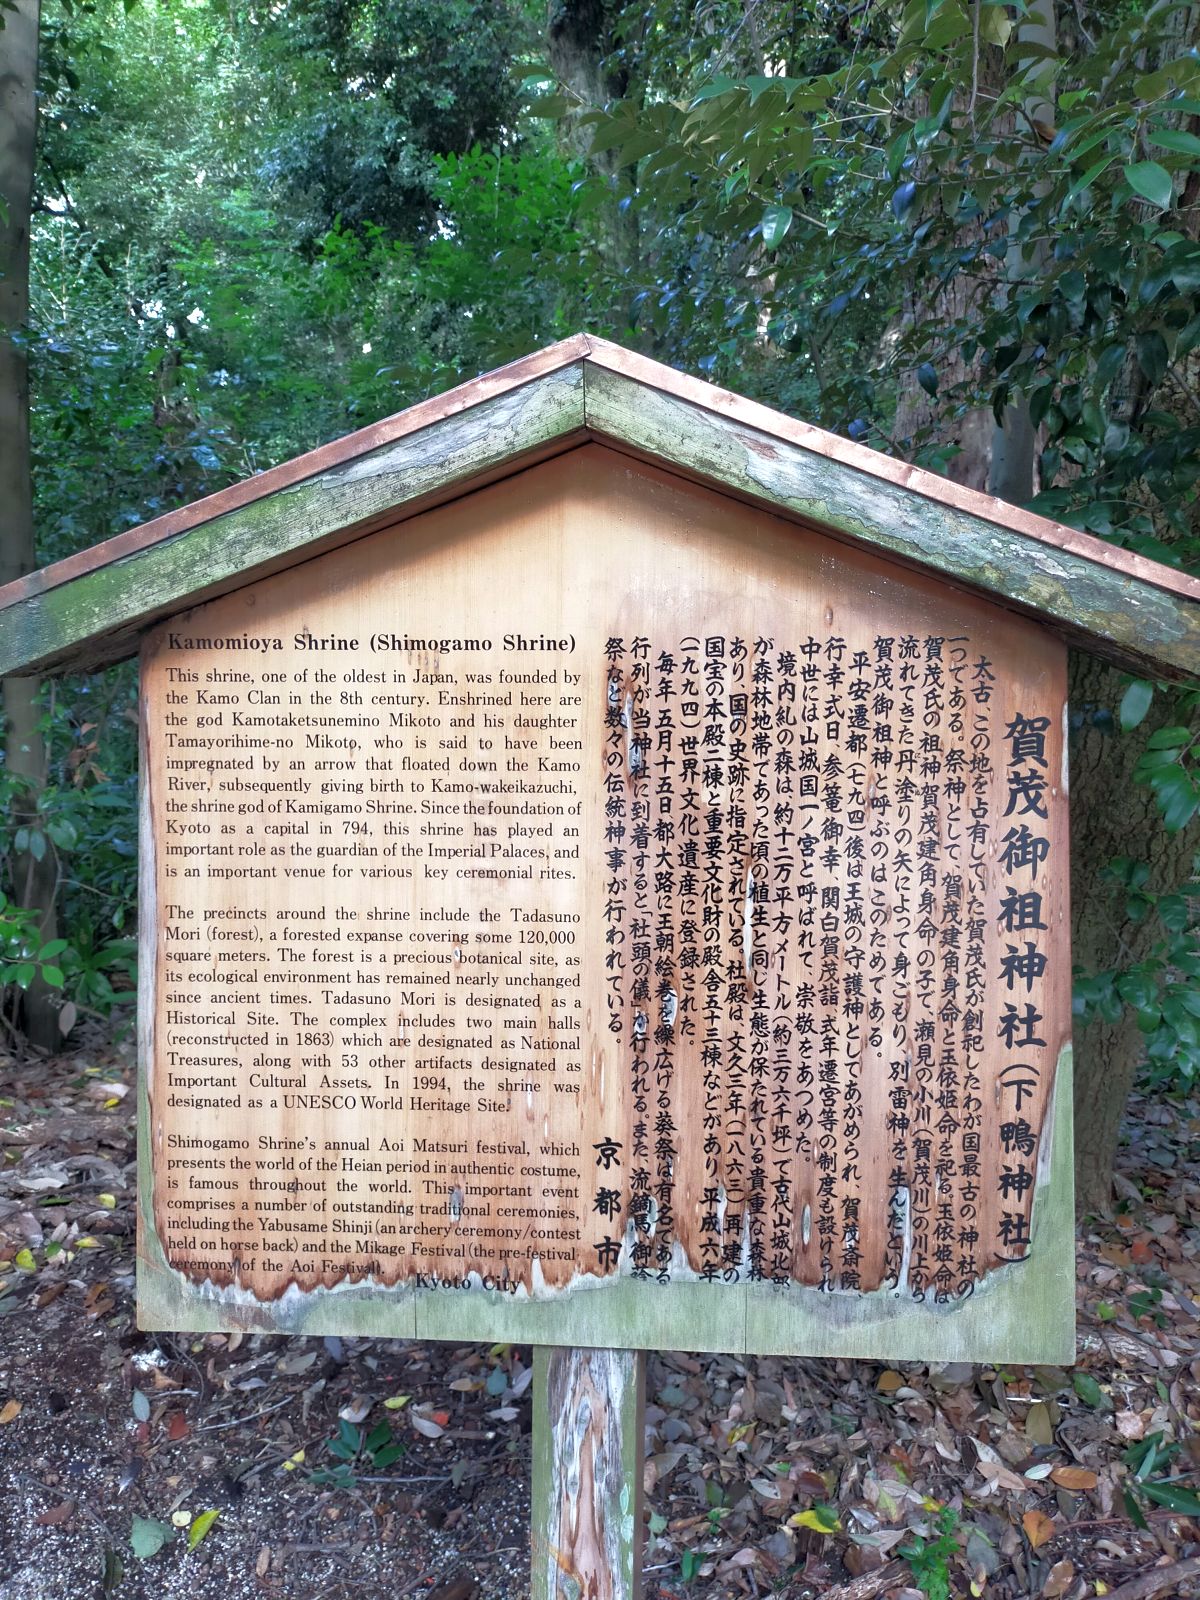 Kamomioya Shrine (Shimogamo Shrine)
This shrine, one of the oldest in Japan, was founded by
the Kamo Clan in the 8th century. Enshrined here are
the god Kamotaketsunemino Mikoto and his daughter
Tamayorihime-no Mikoto, who is said to have been
impregnated by an arrow that floated down the Kamo
River, subsequently giving birth to Kamo-wakeikazuchi,
the shrine god of Kamigamo Shrine. Since the foundation of
Kyoto as a capital in 794, this shrine has played an
important role as the guardian of the Imperial Palaces, and
is an important venue for various key ceremonial rites.
The precincts around the shrine include the Tadasuno
Mori (forest), a forested expanse covering some 120,000
square meters. The forest is a precious botanical site, as
its ecological environment has remained nearly unchanged
since ancient times. Tadasuno Mori is designated as a
Historical Site. The complex includes two main halls
(reconstructed in 1863) which are designated as National
Treasures, along with 53 other artifacts designated as
Important Cultural Assets. In 1994, the shrine was
designated as a UNESCO World Heritage Site.
Shimogamo Shrine's annual Aoi Matsuri festival, which
presents the world of the Heian period in authentic costume,
is famous throughout the world. This important event
comprises a number of outstanding traditional ceremonies,
including the Yabusame Shinji (an archery ceremony/contest
held on horse back) and the Mikage Festival (the pre-festival
ceremony of the Aoi Festival).
Kyoto City
賀茂御祖神社(下鴨神社)
太古 この地を占有していた賀茂氏が創祀したわが国最古の神社の
一つである。祭神として、賀茂建角身命と玉依姫命を祀る。玉依姫命は
賀茂氏の祖神賀茂建角身命の子で、瀬見の小川(賀茂川)の川上から
流れてきた丹塗りの矢によって身ごもり、別雷神を生んだという。
賀茂御祖神と呼ぶのはこのためである。
平安遷都(七九四)後は王城の守護神としてあがめられ、賀茂斎院
行幸式日、参篭御幸、関白賀茂詣、式年遷宮等の制度も設けられ
中世には山城国一ノ宮と呼ばれて、崇敬をあつめた。
境内糺の森は、約十二万平方メートル(約三万六千坪)で古代山城北部
が森林地帯であった頃の植生と同じ生態が保たれている貴重な森林
あり、国の史跡に指定されている。社殿は、文久三年(一八六三)再建の
国宝の本殿二棟と重要文化財の殿舎五十三棟などがあり、平成六年
(一九九四)世界文化遺産に登録された。
毎年五月十五日都大路に王朝絵巻を繰広げる葵祭は有名である
行列が当神社に到着すると「社頭の儀」が行われる。また、流鏑馬、御蔭
祭など数々の伝統神事が行われている。
京都市